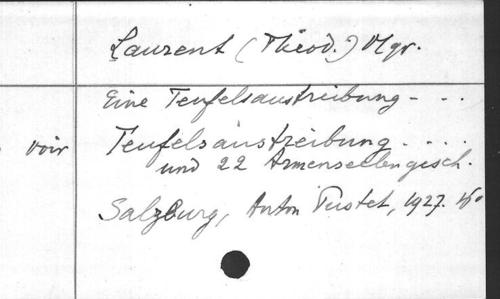 Laurent (Théod.) Mgr.
Eine Teufelsaustreibung - . .
voir Teufelsaustreibung . . . .
und 22 Armenseelengesch.
Salzburg, Anton Pustet, 1927. 16°